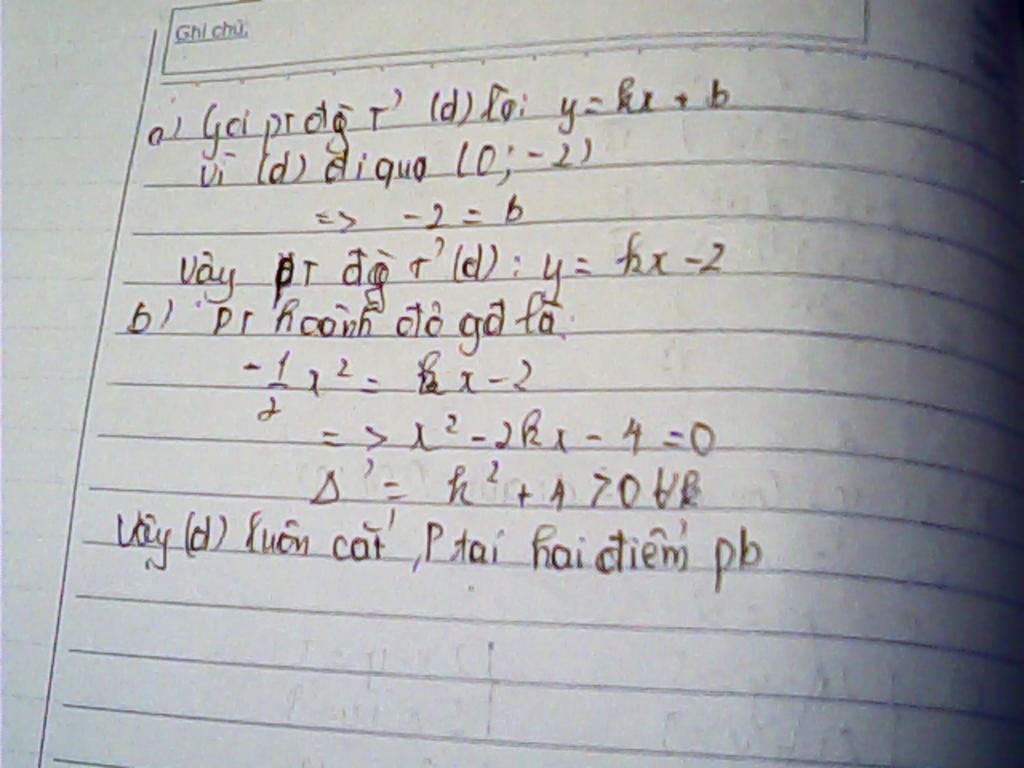 Ghi chú:
a) Gọi pt đg t' (d) là: y = kx + b
vì (d) đi qua (0; -2)
=> -2 = b
Vậy pt đg t' (d): y = kx - 2
b) pt hoành độ gđ là
-1/2 x² = kx - 2
=> x² - 2kx - 4 = 0
Δ' = k² + 4 > 0 ∀k
Vậy (d) luôn cắt P tại hai điểm pb